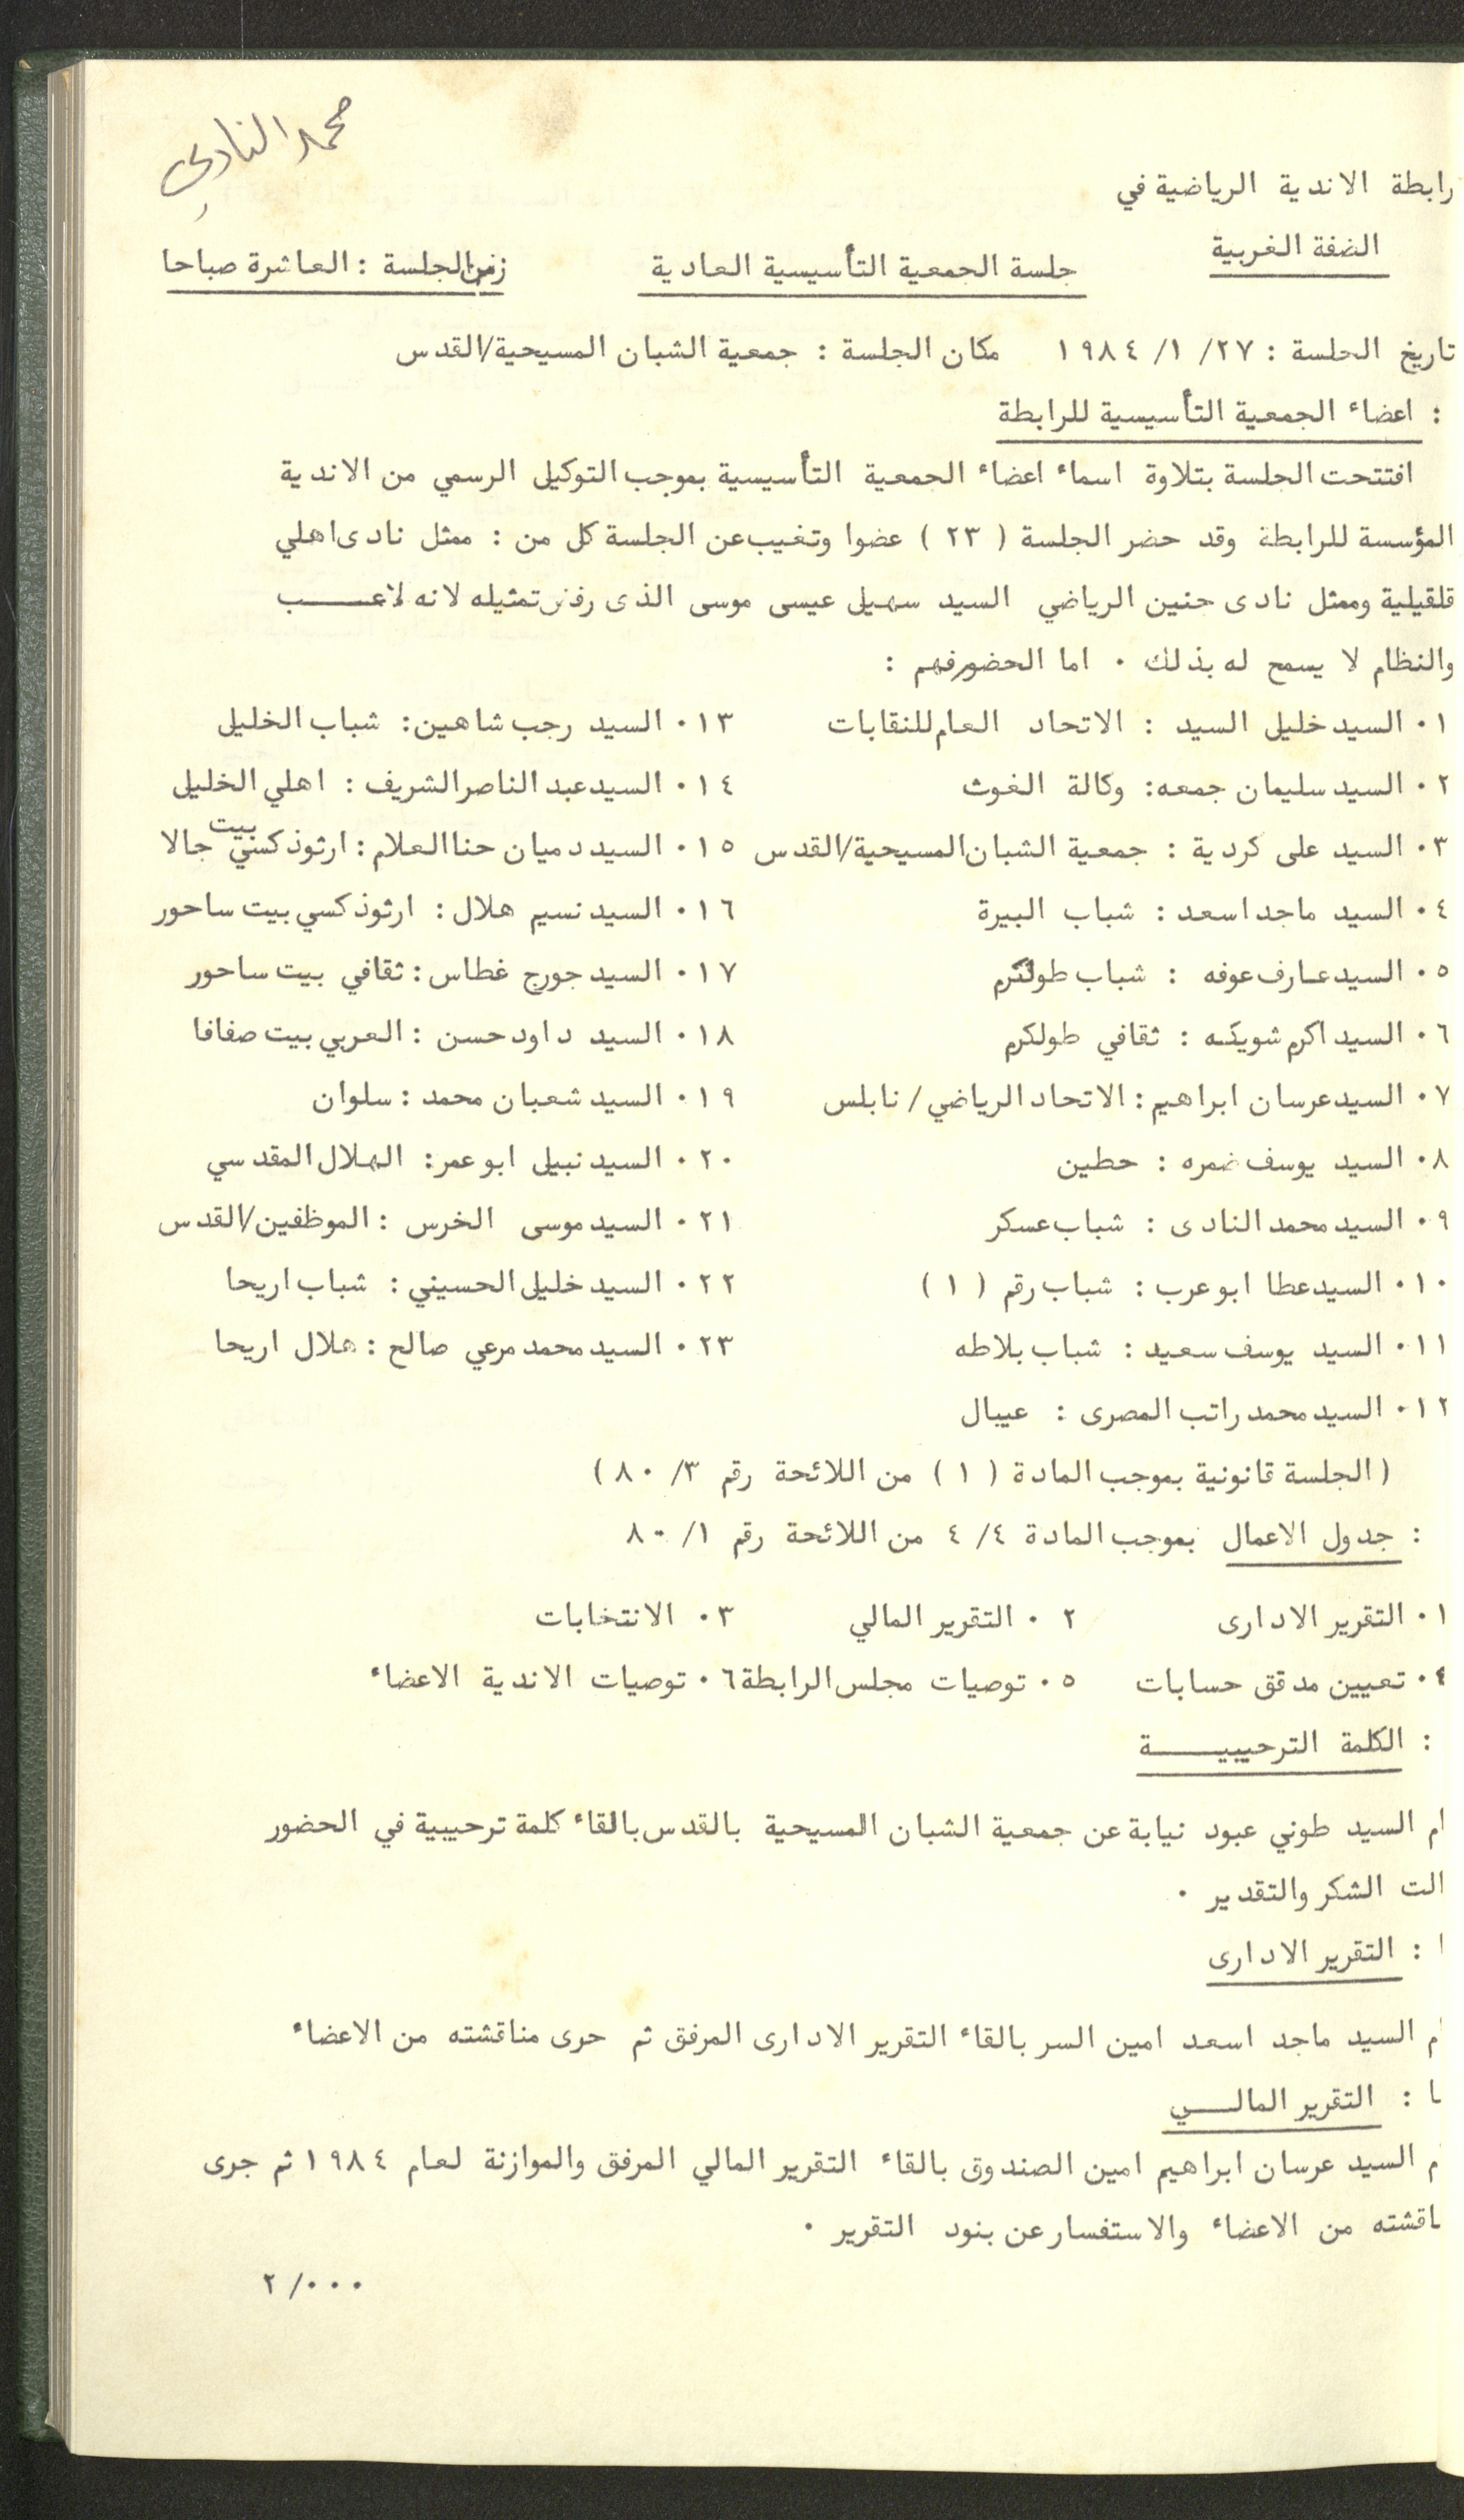 محمد النادي
رابطة الاندية الرياضية في
الضفة الغربية
جلسة الجمعية التأسيسية العادية
زمن الجلسة : العاشرة صباحا
تاريخ الجلسة : ٢٧/ ١/ ١٩٨٤ مكان الجلسة : جمعية الشبان المسيحية/القدس
: اعضاء الجمعية التأسيسية للرابطة
افتتحت الجلسة بتلاوة اسماء اعضاء الجمعية التأسيسية بموجب التوكيل الرسمي من الاندية
المؤسسة للرابطة وقد حضر الجلسة ( ٢٣ ) عضوا وتغيب عن الجلسة كل من : ممثل نادى اهلي
قلقيلية وممثل نادى حنين الرياضي السيد سهيل عيسى موسى الذى رفض تمثيله لانه لاعـــــب
والنظام لا يسمح له بذلك ٠ اما الحضور فهم :
١ ٠ السيد خليل السيد : الاتحاد العام للنقابات ١٣ ٠ السيد رجب شاهين : شباب الخليل
٢ ٠ السيد سليمان جمعه : وكالة الغوث ١٤ ٠ السيد عبد الناصر الشريف : اهلي الخليل
٣ ٠ السيد على كردية : جمعية الشبان المسيحية/القدس ١٥ ٠ السيد دميان حنا العلام : ارثوذكسي بيت جالا
٤ ٠ السيد ماجد اسعد : شباب البيرة ١٦ ٠ السيد نسيم هلال : ارثوذكسي بيت ساحور
٥ ٠ السيد عارف عوفه : شباب طولكرم ١٧ ٠ السيد جورج غطاس : ثقافي بيت ساحور
٦ ٠ السيد اكرم شويكه : ثقافي طولكرم ١٨ ٠ السيد داود حسن : العربي بيت صفافا
٧ ٠ السيد عرسان ابراهيم : الاتحاد الرياضي / نابلس ١٩ ٠ السيد شعبان محمد : سلوان
٨ ٠ السيد يوسف ضمره : حطين ٢٠ ٠ السيد نبيل ابو عمر : الهلال المقدسي
٩ ٠ السيد محمد النادى : شباب عسكر ٢١ ٠ السيد موسى الخرس : الموظفين/القدس
١٠ ٠ السيد عطا ابو عرب : شباب رقم ( ١ ) ٢٢ ٠ السيد خليل الحسيني : شباب اريحا
١١ ٠ السيد يوسف سعيد : شباب بلاطه ٢٣ ٠ السيد محمد مرعي صالح : هلال اريحا
١٢ ٠ السيد محمد راتب المصرى : عيبال
( الجلسة قانونية بموجب المادة ( ١ ) من اللائحة رقم ٣/ ٨٠ )
: جدول الاعمال بموجب المادة ٤/ ٤ من اللائحة رقم ١/ ٨٠
١ ٠ التقرير الادارى ٢ ٠ التقرير المالي ٣ ٠ الانتخابات
٤ ٠ تعيين مدقق حسابات ٥ ٠ توصيات مجلس الرابطة ٦ ٠ توصيات الاندية الاعضاء
: الكلمة الترحيبيـــــة
ام السيد طوني عبود نيابة عن جمعية الشبان المسيحية بالقدس بالقاء كلمة ترحيبية في الحضور
الت الشكر والتقدير ٠
ا : التقرير الادارى
م السيد ماجد اسعد امين السر بالقاء التقرير الادارى المرفق ثم جرى مناقشته من الاعضاء
ا : التقرير المالـــي
م السيد عرسان ابراهيم امين الصندوق بالقاء التقرير المالي المرفق والموازنة لعام ١٩٨٤ ثم جرى
اقشته من الاعضاء والاستفسار عن بنود التقرير ٠
٢/٠٠٠